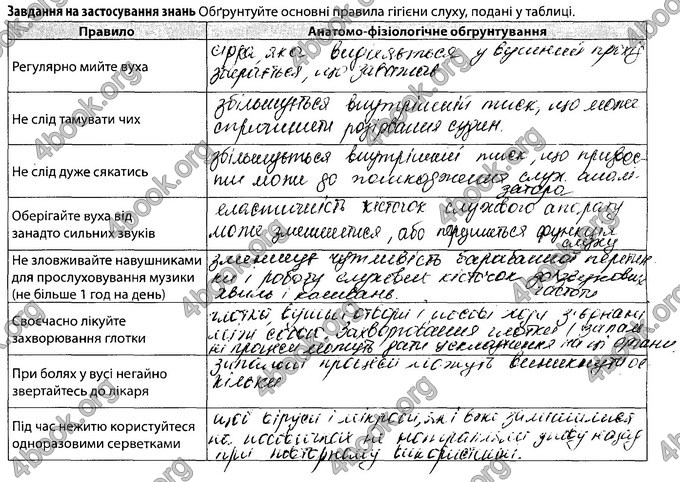 Завдання на застосування знань Обґрунтуйте основні правила гігієни слуху, подані у таблиці.
Правило
Анатомо-фізіологічне обґрунтування
Регулярно мийте вуха
сірка, яка виділяється у вушний прохід
збирається, що заважає
Не слід тамувати чих
збільшується внутрішній тиск, що може
спричинити розірвання судин.
Не слід дуже сякатись
збільшується внутрішній тиск, що призвес-
ти може до пошкодження слух. аналі-
затора
Оберігайте вуха від
занадто сильних звуків
еластичність кісточок слухового апарату
може зменшитися, або порушиться функція
слуху
Не зловживайте навушниками
для прослуховування музики
(не більше 1 год на день)
зменшує чутливість барабанної перетин-
ки і роботу слухових кісточок
хвиль і коливань. частоти
Своєчасно лікуйте
захворювання глотки
глотка вушні отвори і носові ходи з'єднані
між собою. Захворювання глотки і запаль-
ні процеси можуть дати ускладнення на ці органи
При болях у вусі негайно
звертайтесь до лікаря
запальні процеси можуть виникнути
Під час нежитю користуйтеся
одноразовими серветками
щоб віруси і мікроби, які вже залишилися
на не потрапляли знову назад
при повторному використанні.
4book.org